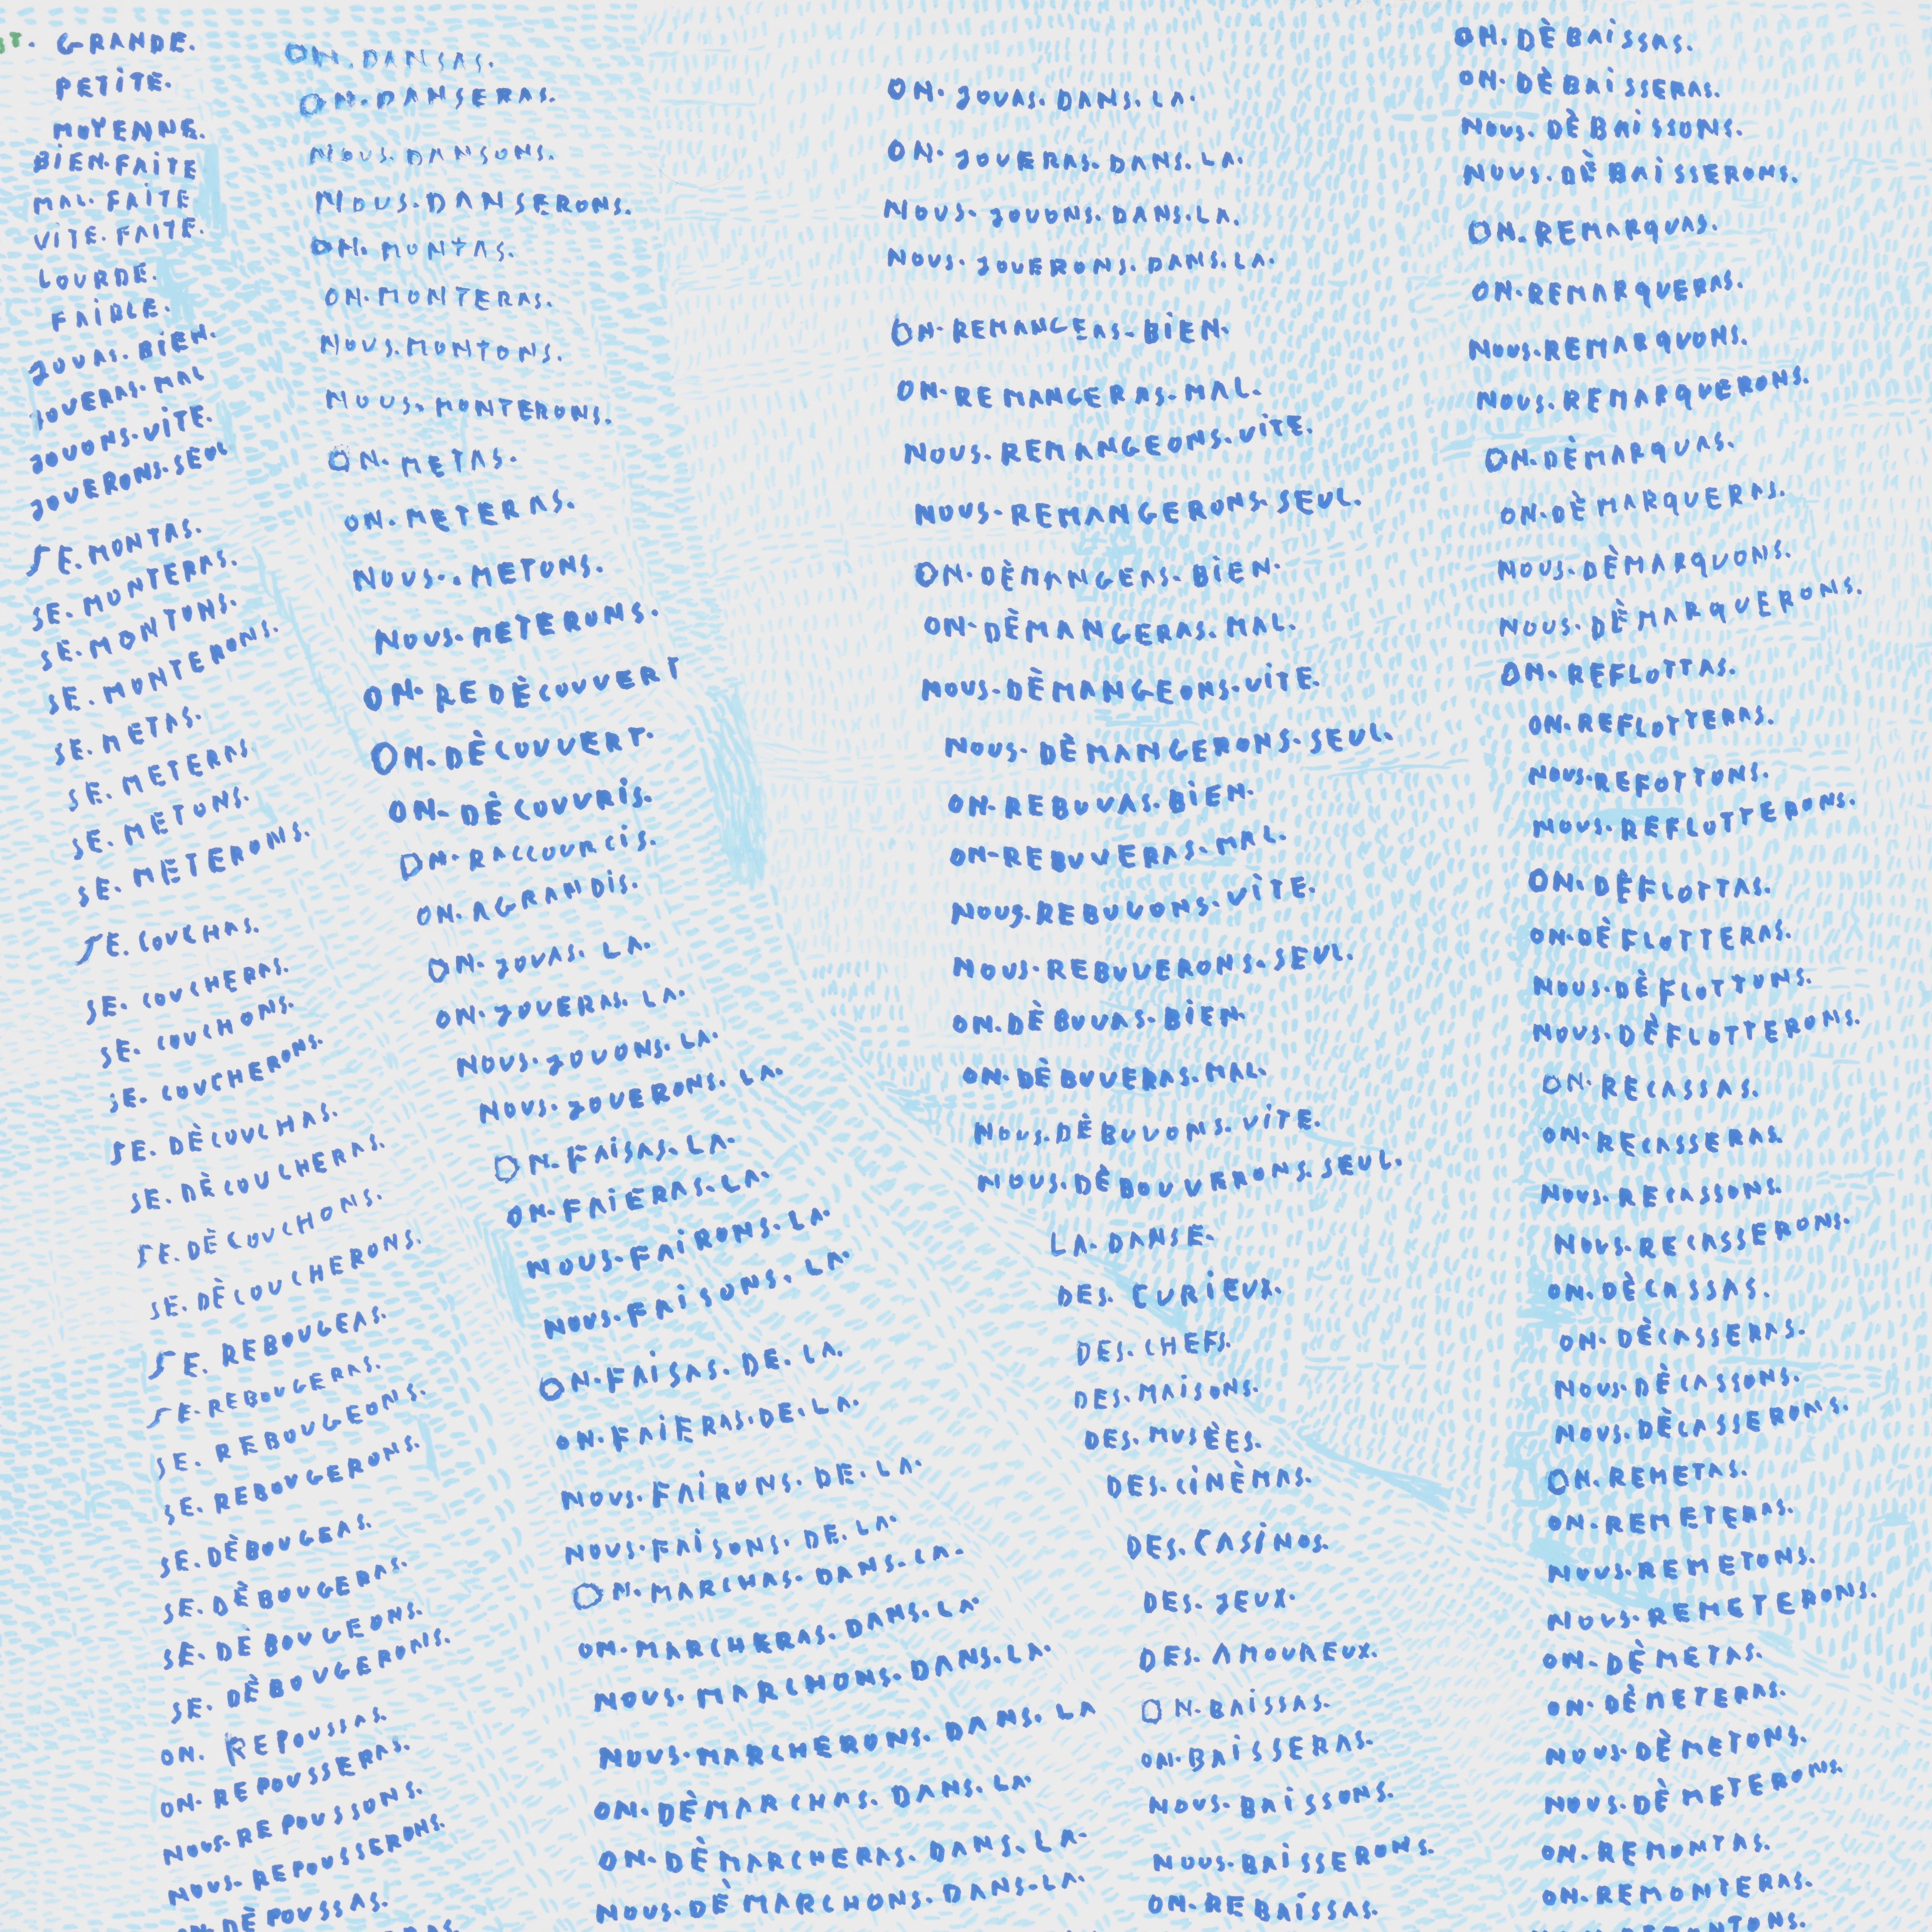 GRANDE.
PETITE.
MOYENNE.
BIEN.FAITE
MAL.FAITE
VITE.FAITE.
LOURDE.
FAIBLE.
JOUAS.BIEN.
JOUERAS.MAL
JOUONS.VITE.
JOUERONS.SEUL
SE.MONTAS.
SE.MONTERAS.
SE.MONTONS.
SE.MONTERONS.
SE.METAS.
SE.METERAS.
SE.METONS.
SE.METERONS.
SE.COUCHAS.
SE.COUCHERAS.
SE.COUCHONS.
SE.COUCHERONS.
SE.DÈCOUCHAS.
SE.DÈCOUCHERAS.
SE.DÈCOUCHONS.
SE.DÈCOUCHERONS.
SE.REBOUGEAS.
SE.REBOUGERAS.
SE.REBOUGEONS.
SE.REBOUGERONS.
SE.DÈBOUGEAS.
SE.DÈBOUGERAS.
SE.DÈBOUGEONS.
SE.DÈBOUGERONS.
ON.REPOUSSAS.
ON.REPOUSSERAS.
NOUS.REPOUSSONS.
NOUS.REPOUSSERONS.
ON.DÈPOUSSAS.
ON.DANSAS.
ON.DANSERAS.
NOUS.DANSONS.
NOUS.DANSERONS.
ON.MONTAS.
ON.MONTERAS.
NOUS.MONTONS.
NOUS.MONTERONS.
ON.METAS.
ON.METERAS.
NOUS..METONS.
NOUS.METERONS.
ON.REDÈCOUVVERT
ON.DÈCOUVVERT.
ON.DÈCOUVVRIS.
ON.RACCOURCIS.
ON.AGRANDIS.
ON.JOUAS.LA.
ON.JOUERAS.LA.
NOUS.JOUONS.LA.
NOUS.JOUERONS.LA.
ON.FAISAS.LA.
ON.FAIERAS.LA.
NOUS.FAIRONS.LA.
NOUS.FAISONS.LA.
ON.FAISAS.DE.LA.
ON.FAIERAS.DE.LA.
NOUS.FAIRONS.DE.LA.
NOUS.FAISONS.DE.LA.
ON.MARCHAS.DANS.LA.
ON.MARCHERAS.DANS.LA.
NOUS.MARCHONS.DANS.LA.
NOUS.MARCHERONS.DANS.LA
ON.DÈMARCHAS.DANS.LA.
ON.DÈMARCHERAS.DANS.LA.
NOUS.DÈMARCHONS.DANS.LA.
ON.JOUAS.DANS.LA.
ON.JOUERAS.DANS.LA.
NOUS.JOUONS.DANS.LA.
NOUS.JOUERONS.DANS.LA.
ON.REMANGEAS.BIEN.
ON.REMANGERAS.MAL.
NOUS.REMANGEONS.VITE.
NOUS.REMANGERONS.SEUL.
ON.DÈMANGEAS.BIEN.
ON.DÈMANGERAS.MAL.
NOUS.DÈMANGEONS.VITE.
NOUS.DÈMANGERONS.SEUL.
ON.REBUVAS.BIEN.
ON-REBUVERAS.MAL.
NOUS.REBUVONS.VITE.
NOUS.REBUVERONS.SEUL.
ON.DÈBUVAS.BIEN.
ON.DÈBUVERAS.MAL.
NOUS.DÈBUVONS.VITE.
NOUS.DÈBOUVERONS.SEUL.
LA.DANSE.
DES.CURIEUX.
DES.CHEFS.
DES.MAISONS.
DES.MUSÈES.
DES.CINÈMAS.
DES.CASINOS.
DES.JEUX.
DES.AMOUREUX.
ON.BAISSAS.
ON.BAISSERAS.
NOUS.BAISSONS.
NOUS.BAISSERONS.
ON.REBAISSAS.
ON.DÈBAISSAS.
ON.DÈBAISSERAS.
NOUS.DÈBAISSONS.
NOUS.DÈBAISSERONS.
ON.REMARQUAS.
ON.REMARQUERAS.
NOUS.REMARQUONS.
NOUS.REMARQUERONS.
ON.DÈMARQUAS.
ON.DÈMARQUERAS.
NOUS.DÈMARQUONS.
NOUS.DÈMARQUERONS.
ON.REFLOTTAS.
ON.REFLOTTERAS.
NOUS.REFOTTONS.
NOUS.REFLOTTERONS.
ON.DÈFLOTTAS.
ON.DÈFLOTTERAS.
NOUS.DÈFLOTTONS.
NOUS.DÈFLOTTERONS.
ON.RECASSAS.
ON.RECASSERAS.
NOUS.RECASSONS.
NOUS.RECASSERONS.
ON.DÈCASSAS.
ON.DÈCASSERAS.
NOUS.DÈCASSONS.
NOUS.DÈCASSERONS.
ON.REMETAS.
ON.REMETERAS.
NOUS.REMETONS.
NOUS.REMETERONS.
ON.DÈMETAS.
ON.DÈMETERAS.
NOUS.DÈMETONS.
NOUS.DÈMETERONS.
ON.REMONTAS.
ON.REMONTERAS.